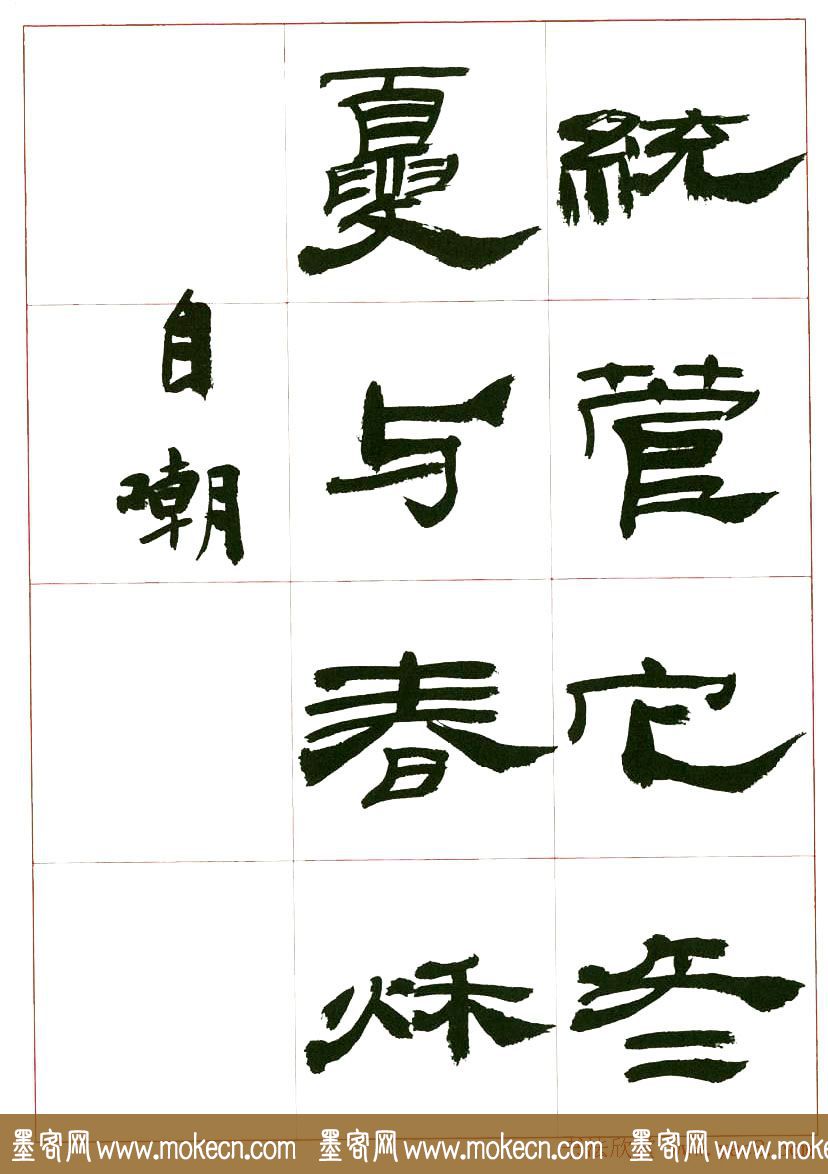 統管它冬
夏与春秌
自嘲
墨客网 www.mokecn.com 墨客网 www.mokecn.com 墨客网 www.mokecn.com